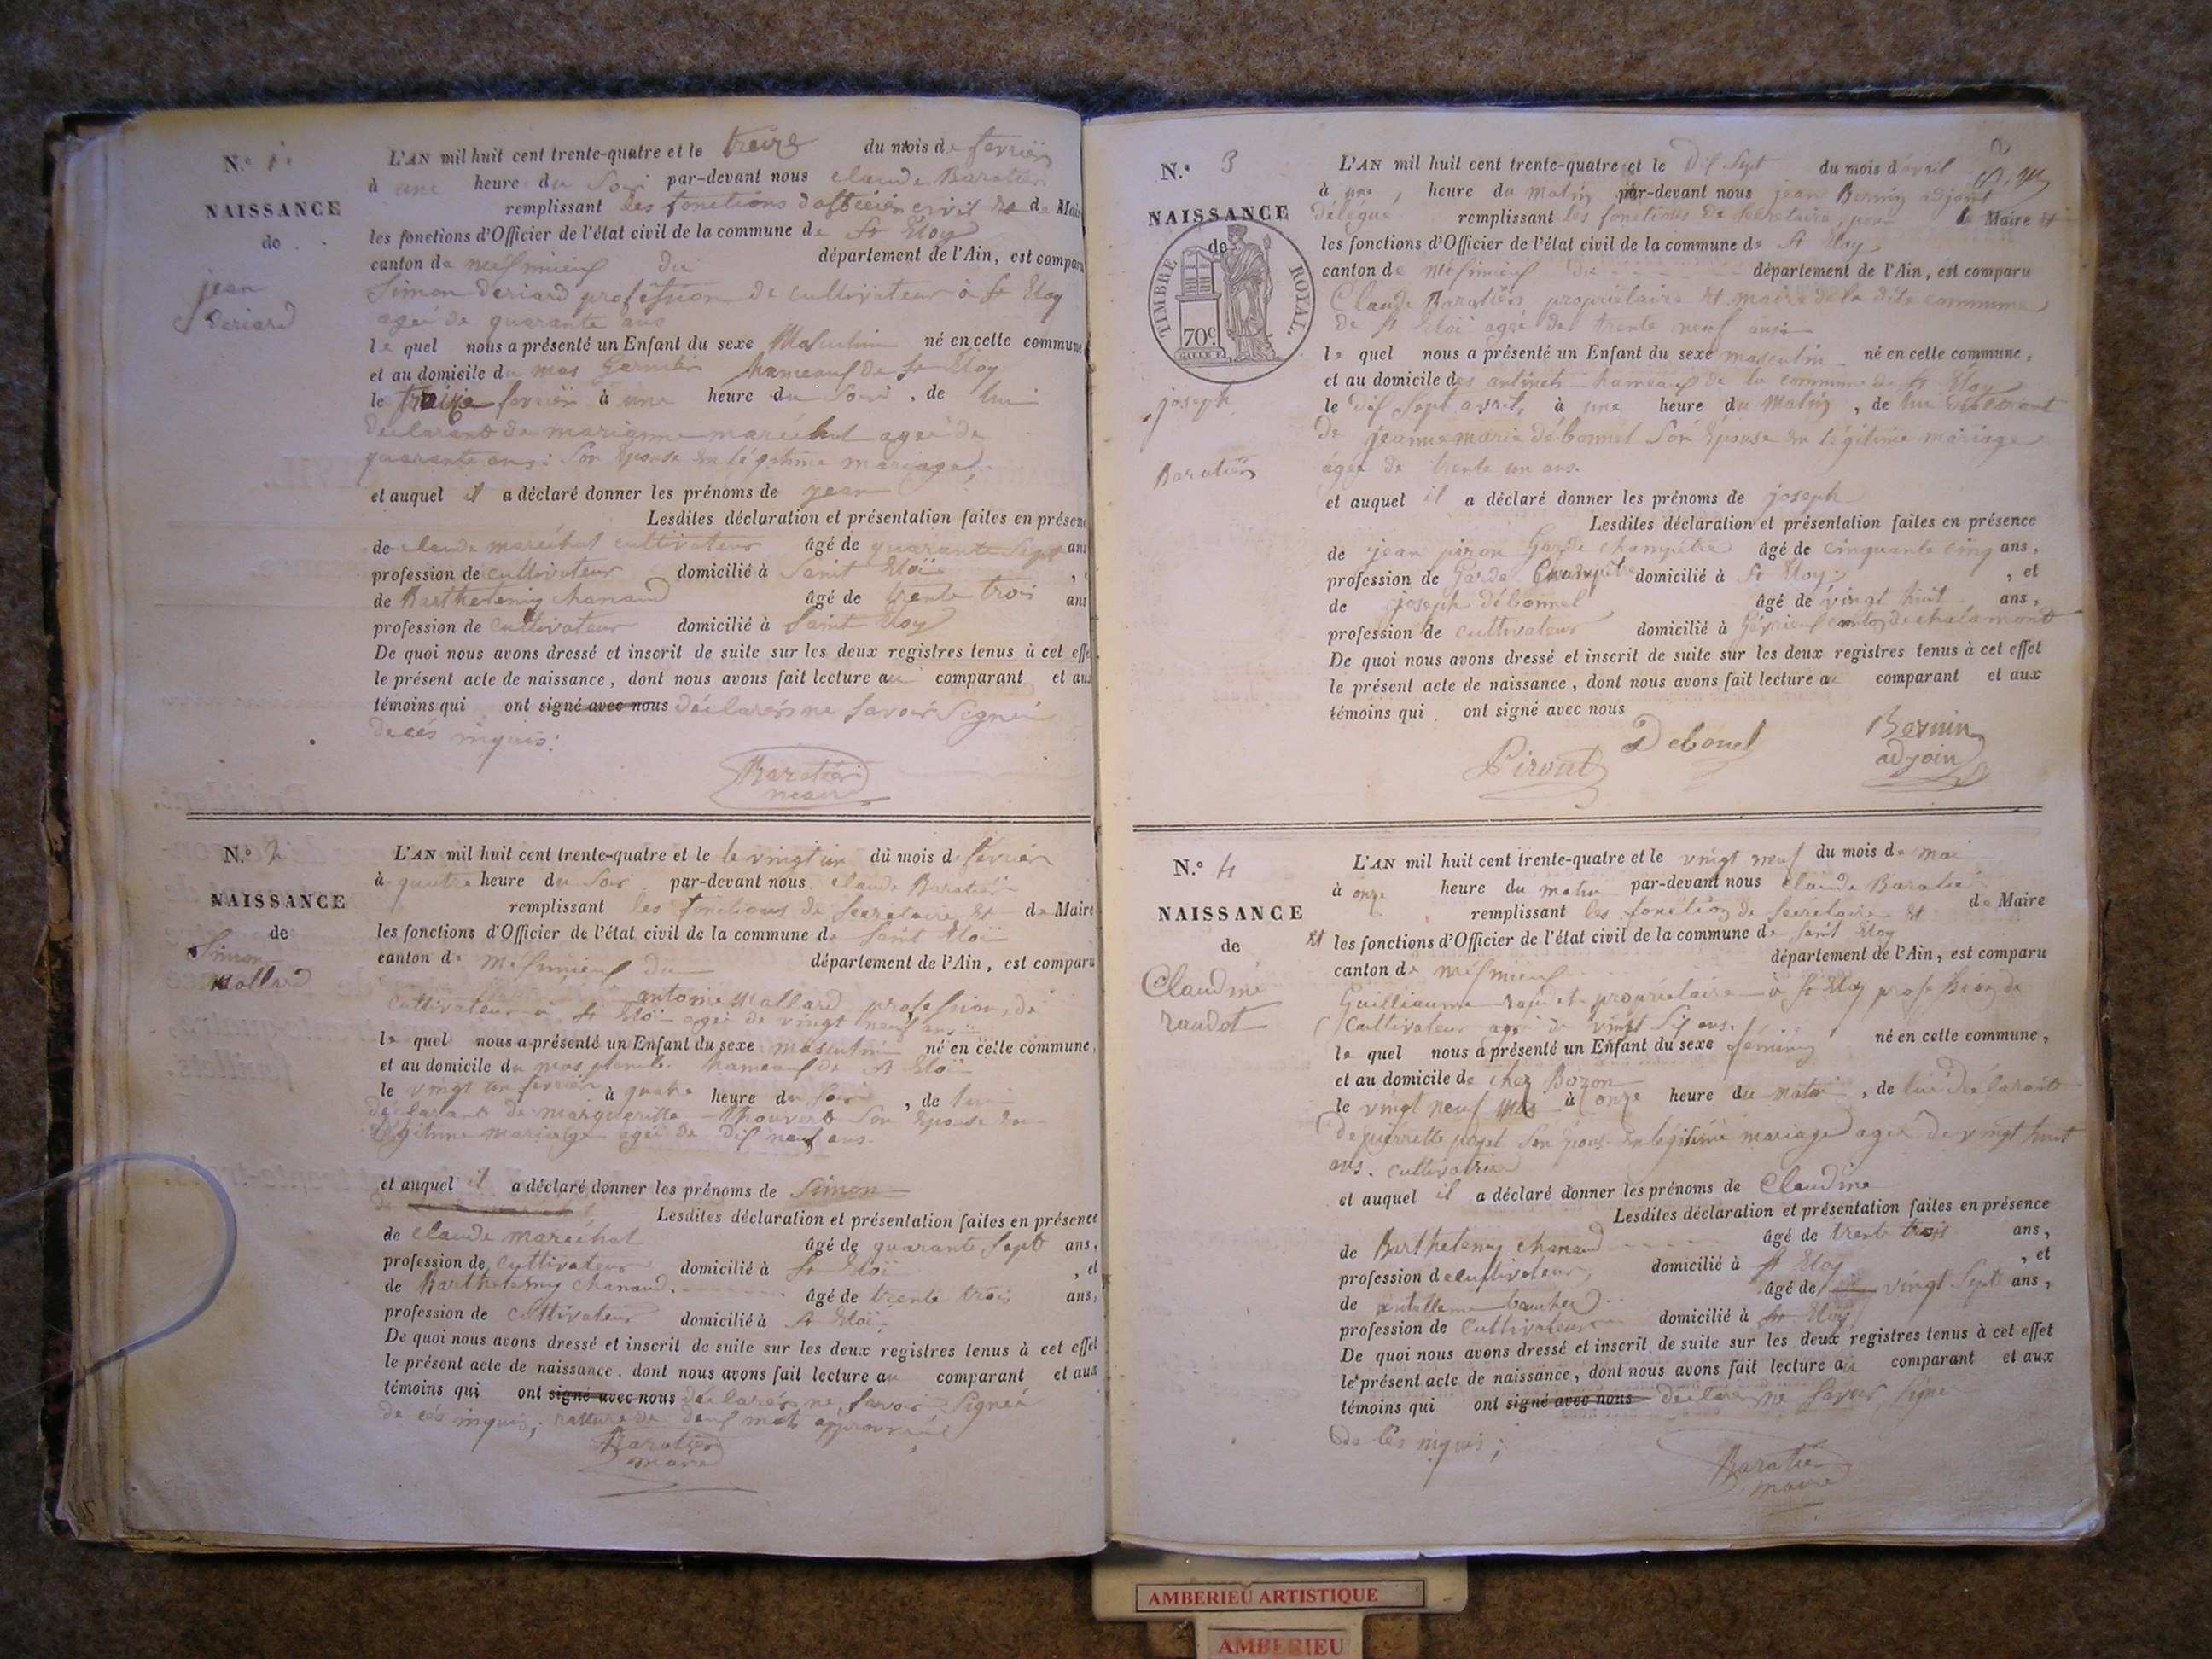 N.o 1
NAISSANCE
de
jean
Deriard
L'AN mil huit cent trente-quatre et le treize du mois de fevrier
à une heure du Soir par-devant nous claude Baratier
remplissant les fonctions d'officier civil de Maire
les fonctions d'Officier de l'état civil de la commune de St Eloy
canton de du département de l'Ain, est comparu
Simon Deriard profession de cultivateur à St Eloy
ageé de quarante ans
le quel nous a présenté un Enfant du sexe Masculin né en cette commune
et au domicile du mas Garnier hameaux de St Eloy
le treize fevrier à une heure du Soir, de lui
declarant de marianne maréchal ageé de
quarante ans: Son Epouse en légitime mariage,
et auquel il a déclaré donner les prénoms de jean
Lesdites déclaration et présentation faites en présence
de claude maréchal cultivateur âgé de quarante Sept ans
profession de cultivateur domicilié à Saint Eloï
de Barthelemy chanaud âgé de trente trois ans
profession de cultivateur domicilié à Saint Eloy
De quoi nous avons dressé et inscrit de suite sur les deux registres tenus à cet effet
le présent acte de naissance, dont nous avons fait lecture au comparant et aux
témoins qui ont signé avec nous déclarér ne Savoir Signer
de cés
Baratier
maire
N.o 2
NAISSANCE
de
Simon
Mollard
L'AN mil huit cent trente-quatre et le le vingt un du mois de février
à quatre heure du Soir par-devant nous claude Baratier
remplissant les fonctions de Secretaire Et de Maire
les fonctions d'Officier de l'état civil de la commune de Saint Eloï
canton de du département de l'Ain, est comparu
antoine Mollard profession de
Cultivateur à St Eloï ageé de vingt neuf ans
le quel nous a présenté un Enfant du sexe masculin né en cette commune,
et au domicile du mas hameaux de St Eloï
le vingt un fevrier à quatre heure du Soir, de lui
déclarant de margueritte Thouverd Son Epouse en
légitime mariage ageé de dix neuf ans.
et auquel il a déclaré donner les prénoms de Simon
Lesdites déclaration et présentation faites en présence
de claude maréchal âgé de quarante Sept ans,
profession de cultivateur domicilié à St Eloï, et
de Barthelemy chanaud âgé de trente trois ans,
profession de cultivateur domicilié à St Eloï
De quoi nous avons dressé et inscrit de suite sur les deux registres tenus à cet effet
le présent acte de naissance, dont nous avons fait lecture au comparant et aux
témoins qui ont signé avec nous déclarér ne Savoir Signer
de cés rature de deux mots approuvé
Baratier
maire
N.o 3
NAISSANCE
de
TIMBRE ROYAL.
70c
joseph
Baratier
L'AN mil huit cent trente-quatre et le Dix Sept du mois d'avril
à une, heure du matin par-devant nous jean Bernin adjoint
délégué remplissant les fonctions de secretaire, de Maire et
les fonctions d'Officier de l'état civil de la commune de St Eloy
canton de du département de l'Ain, est comparu
Claude Baratier propriétaire Et maire de la dite commune
de St Eloï ageé de trente neuf ans
le quel nous a présenté un Enfant du sexe masculin né en cette commune,
et au domicile des hameaux de la commune de St Eloy
le Dix Sept avril, à une heure du Matin, de lui déclarant
de jeanne marie débonnel Son épouse en légitime mariage
ágée de trente un ans.
et auquel il a déclaré donner les prénoms de joseph
Lesdites déclaration et présentation faites en présence
de jean piron Garde champétre âgé de cinquante cinq ans,
profession de Garde Champétre domicilié à St Eloy, et
de joseph débonnel âgé de vingt huit ans,
profession de cultivateur domicilié à canton de chalamont
De quoi nous avons dressé et inscrit de suite sur les deux registres tenus à cet effet
le présent acte de naissance, dont nous avons fait lecture au comparant et aux
témoins qui ont signé avec nous
Piront Debonel Bernin
adjoin
N.o 4
NAISSANCE
de
Claudine
raudet
L'AN mil huit cent trente-quatre et le vingt neuf du mois de mai
à onze heure du matin par-devant nous claude Baratier
remplissant les fonction de Secrétaire Et de Maire
Et les fonctions d'Officier de l'état civil de la commune de Saint Eloy
canton de département de l'Ain, est comparu
Guilliaume raudet propriétaire à St Eloy profession de
Cultivateur agé de vingt Six ans.
le quel nous a présenté un Enfant du sexe féminin né en cette commune,
et au domicile de chez Bozon
le vingt neuf Mai à onze heure du matin, de lui déclarant
de pierrette Son épouse en légitime mariage agée de vingt huit
ans. cultivatrice
et auquel il a déclaré donner les prénoms de Claudine
Lesdites déclaration et présentation faites en présence
de Barthelemy chanaud âgé de trente trois ans,
profession de cultivateur, domicilié à St Eloy, et
de âgé de vingt Sept ans,
profession de Cultivateur domicilié à St Eloy
De quoi nous avons dressé et inscrit de suite sur les deux registres tenus à cet effet
le présent acte de naissance, dont nous avons fait lecture au comparant et aux
témoins qui ont signé avec nous déclarer ne Savoir Signer
de cés
Baratier
maire
AMBERIEU ARTISTIQUE
AMBERIEU